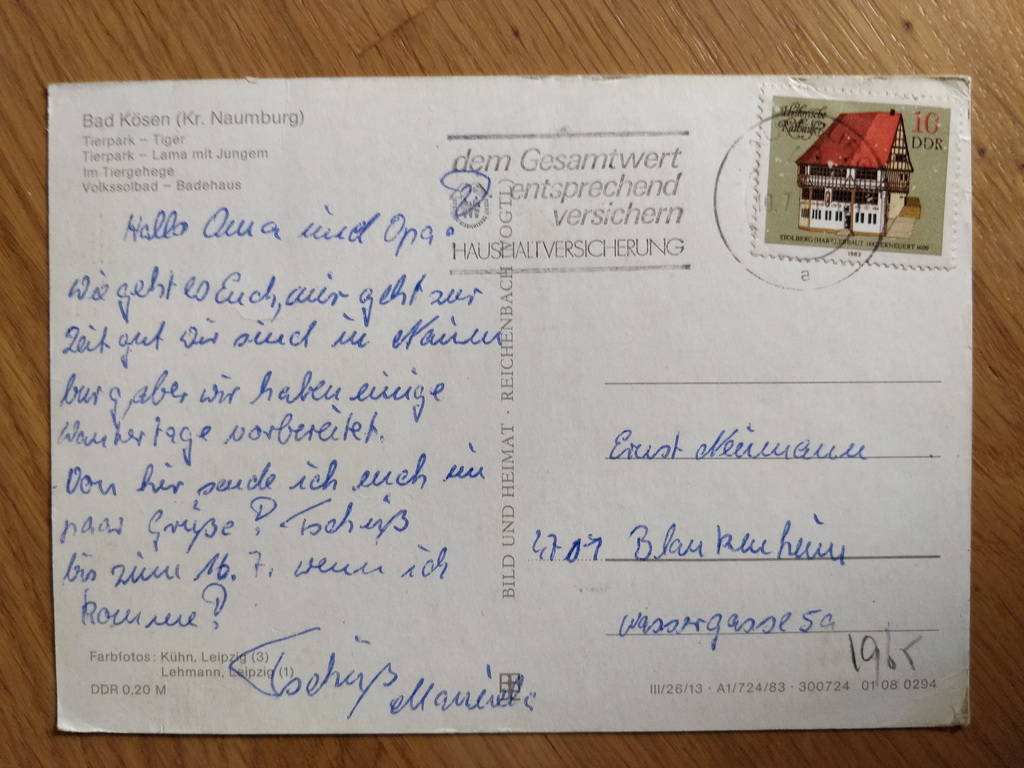 Bad Kösen (Kr. Naumburg)
Tierpark – Tiger
Tierpark – Lama mit Jungem
Im Tiergehege
Volkssolbad – Badehaus
Hallo Oma und Opa!
Wie geht es Euch, mir geht zur
Zeit gut wir sind in Naum
burg, aber wir haben einige
Wandertage vorbereitet.
Von hir sende ich euch ein
paar Grüße! Tschüß
bis zum 16. 7. wenn ich
komme!
Tschüß
Farbfotos: Kühn, Leipzig (3)
Lehmann, Leipzig (1)
DDR 0,20 M
BILD UND HEIMAT · REICHENBACH (VOGTL)
dem Gesamtwert
entsprechend
versichern
HAUSHALTVERSICHERUNG
Historische
Rathäuser
10
DDR
STOLBERG (HARZ) ERBAUT 1482 ERNEUERT 1600
1983
a
Ernst Neumann
4701 Blankenheim
Wassergasse 5a
1985
III/26/13 · A1/724/83 · 300724 01 08 0294